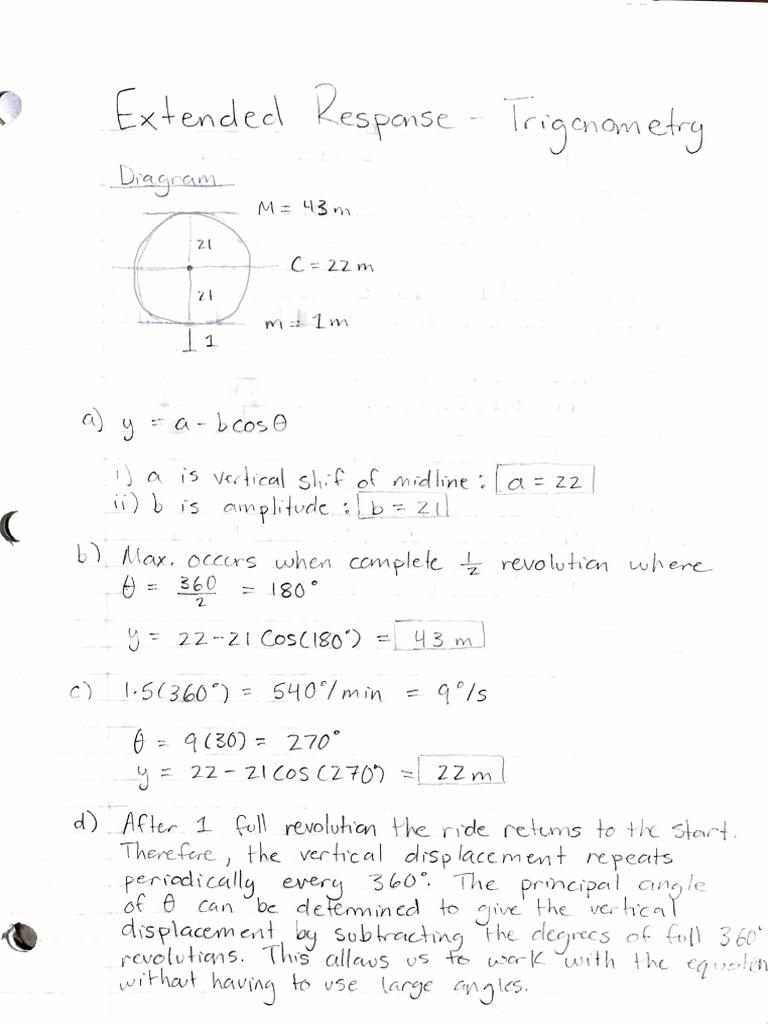 Extended Response - Trigonometry
Diagram
M = 43 m
21
C = 22 m
21
m = 1 m
1
a) y = a - b cos θ
i) a is vertical shif of midline : a = 22
ii) b is amplitude : b = 21
b) Max. occurs when complete 1/2 revolution where
θ = 360/2 = 180°
y = 22 - 21 Cos(180°) = 43 m
c) 1.5(360°) = 540°/min = 9°/s
θ = 9(30) = 270°
y = 22 - 21 cos(270°) = 22 m
d) After 1 full revolution the ride returns to the start.
Therefore, the vertical displacement repeats
periodically every 360°. The principal angle
of θ can be determined to give the vertical
displacement by subtracting the degrees of full 360°
revolutions. This allows us to work with the equation
without having to use large angles.